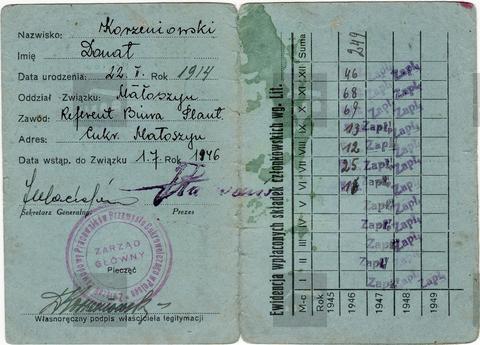 Nazwisko: Korzeniowski
Imię Donat
Data urodzenia: 22. V. Rok 1914
Oddział Związku: Małoszyn
Zawód: Referent Biura Plant.
Adres: Cukr. Małoszyn
Data wstąp. do Związku 1.7 Rok 1946
Sekretarz Generalny Prezes
ZARZĄD
GŁÓWNY
Pieczęć
Własnoręczny podpis właściciela legitymacji
Ewidencja wpłaconych składek członkowskich wg. Lit.
M-c I II III IV V VI VII VIII IX X XI XII Suma
Rok
1945
1946 18 25 12 13 69 68 46 249
1947 Zapł. Zapł. Zapł. Zapł. Zapł. Zapł.
1948 Zapł. Zapł. Zapł. Zapł. Zapł. Zapł. Zapł. Zapł. Zapł. Zapł. Zapł.
1949 Zapł.